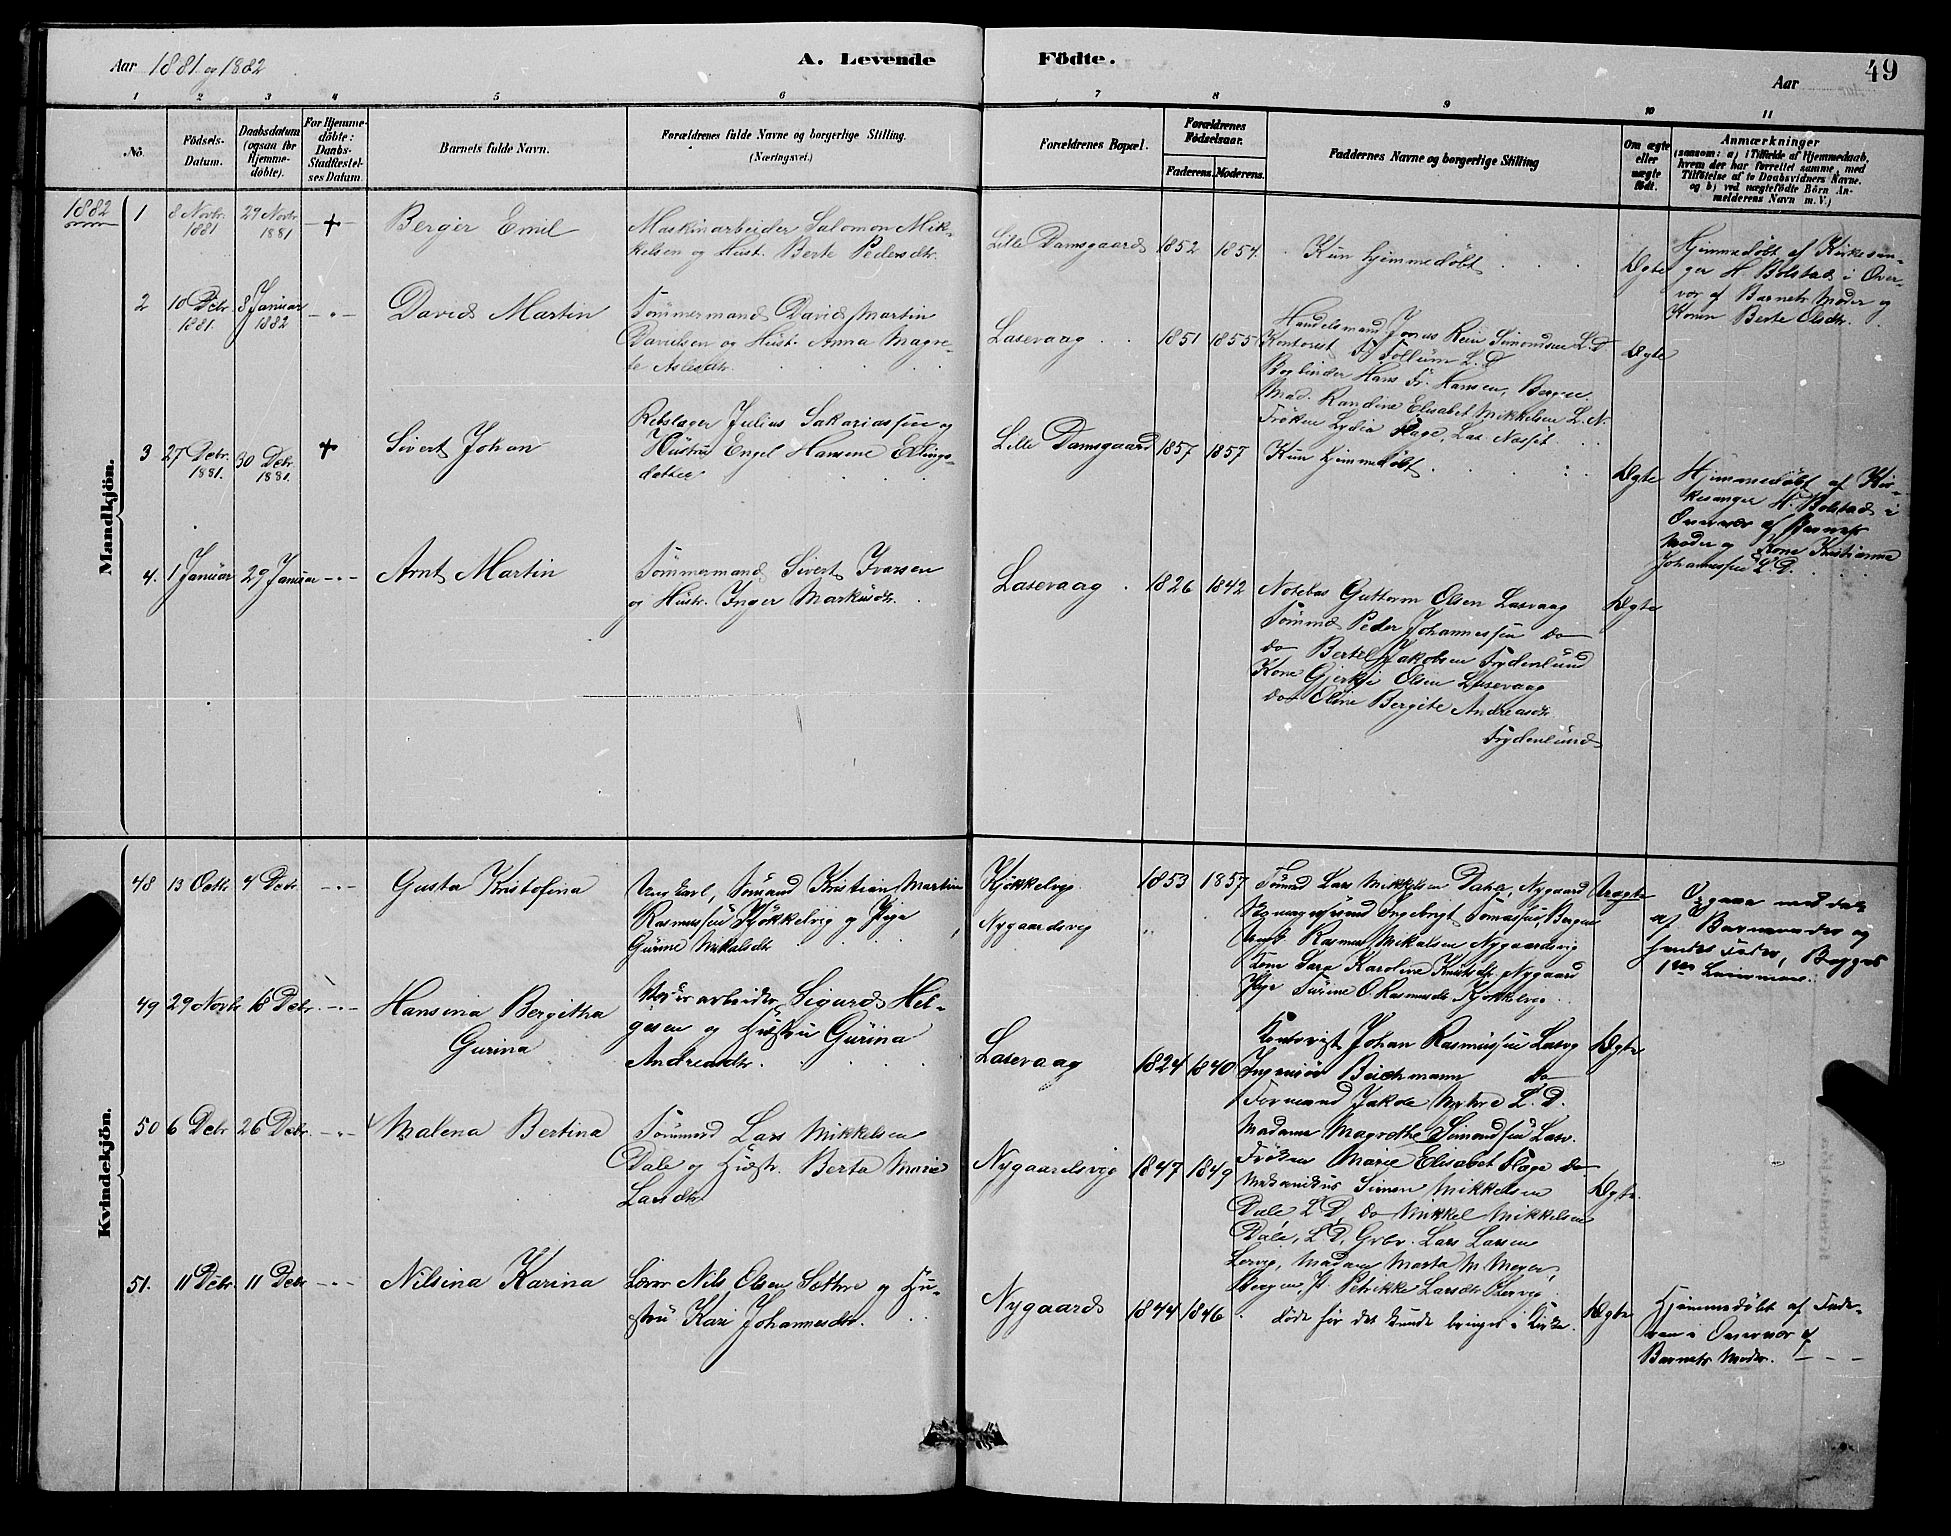 Aar 1881 og 1882
A. Levende Födte.
Aar
49
1 2 3 4 5 6 7 8 9 10 11
No.
Födsels-Datum.
Daabsdatum (ogsaa for Hjemmedöbte).
For Hjemmedöbte: Daabs-Stadfestelses Datum.
Barnets fulde Navn.
Forældrenes fulde Navne og borgerlige Stilling.
(Næringsvei.)
Forældrenes Bopæl.
Forældrenes Födselsaar.
Faderens. Moderens.
Faddernes Navne og borgerlige Stilling
Om ægte eller uægte födt.
Anmærkninger
(saasom: a) i Tilfælde af Hjemmedaab,
hvem der har forrettet samme, med
Tilföielse af to Daabsvidners Navne.
og b) ved uægtefödte Börn Anmelderens Navn m. V.)
Mandkjön.
1882
1 8 Novbr. 1881 29 Novbr. 1881 +
Berger Emil
Maskinarbeider Salomon Mik-
kelsen og Hust. Berte Pedersdtr.
Lille Damsgaard 1852 1854.
Kun hjemmedöbt
Ægte
Hjemmedöbt af Kirkesan-
ger H Bolstad i Over-
vær af Barnets Moder og
Konen Berte Olsdtr.
2 10 Debr. 1881. 8 Januar 1882 - " -
David Martin
Tömmermand David Martin
Davidsen og Hust. Anna Magre-
te Aslesdtr.
Laxevaag 1851 1855
Handelsmand Jonas Rein Simonsen L.D.
Kontorist Follum L.D
Bogbinder Hans Fr. Hansen, Bergen.
Mad. Randine Elisabet Mikkelsen L.N.
Fröken Lydia Hage, Lax. Nösset
Ægte
3 27 Debr. 1881. 30 Debr. 1881. +
Sivert Johan
Rebslager Julius Sakariassen og
Hustru Engel Hansine Ellings-
datter
Lille Damsgaard 1857 1857
Kun hjemmedöbt
Ægte
Hjemmedöbt af Kir-
kesanger H. Bolstad i
Overvær af Barnets
Moder og Kone Kristianna
Johannessen L.D.
4. 1 Januar 29 Januar - " -
Arnt Martin
Tömmermand Sivert Ivarsen
og Hustr. Inger Markusdtr.
Laxevaag 1826 1842
Notebas Guttorm Olsen Laxvaag
Tömmd Peder Johannessen do
do Bertel Jakobsen Frydenlund
Kone Gjertje Olsen Laxevaag
do Oline Bergite Andreasdtr.
Frydenlund
Ægte
Kvindekjön.
48 13 Octb. 4 Debr. - " -
Gusta Kristofina
Ungkarl, Sömand Kristian Martin
Rasmussen Kjökkelvig og Pige
Gurine Mikalsdtr
Kjökkelvig
Nygaardsvig
1853 1857
Tömmd Lars Mikkelsen Dahe, Nygaard
Ingebrigt Tomassen, Bergen
Ungk. Rasmus Mikalsen Nygaardsvig
Kone Sara Karoline Knutsdtr Nygaard
Pige Turine O. Rasmusdtr Kjökkelvig
Uægte
Opgave meddelt
af Barnemoder og
hendes Fader, Begges
1ste Leiermaal.
49 29 Novbr 18 Debr. - " -
Hansina Bergitha
Gurina
Værksarbeider Sigurd Hel-
gesen og Hustru Gurina
Andreasdtr.
Laxevaag 1824 1840
Kontorist Johan Rasmussen Laxvg
Ingeniör Beichmann do
Formand Jakob L.D.
Madame Magrethe Simonsen Laxv.
Fröken Marie Elisabet Hage do
Ægte
50 6 Debr 26 Debr. - " -
Malena Bertina
Tömmerd Lars Mikkelsen
Dale og Hustr. Berta Marie
Larsdtr
Nygaardsvig 1847 1849
Mekanikus Simon Mikkelsen
Dale L.D, do Mikkel Mikkelsen
Dale, L.D, Grbr. Lars Larsen
Lervig, Madam Marta M. Meyer,
Bergen, P. Petrikke Larsdtr Lervig
Ægte
51. 11 Debr. 11 Debr - " -
Nilsina Karina
Lærer Nils Olsen Sættre og Hu-
stru Kari Johannesdtr.
Nygaard 1844 1846
döde för det kunde bringes i Kirke.
Ægte
Hjemmedöbt af Fade-
ren i Overvær af
Barnets Moder.